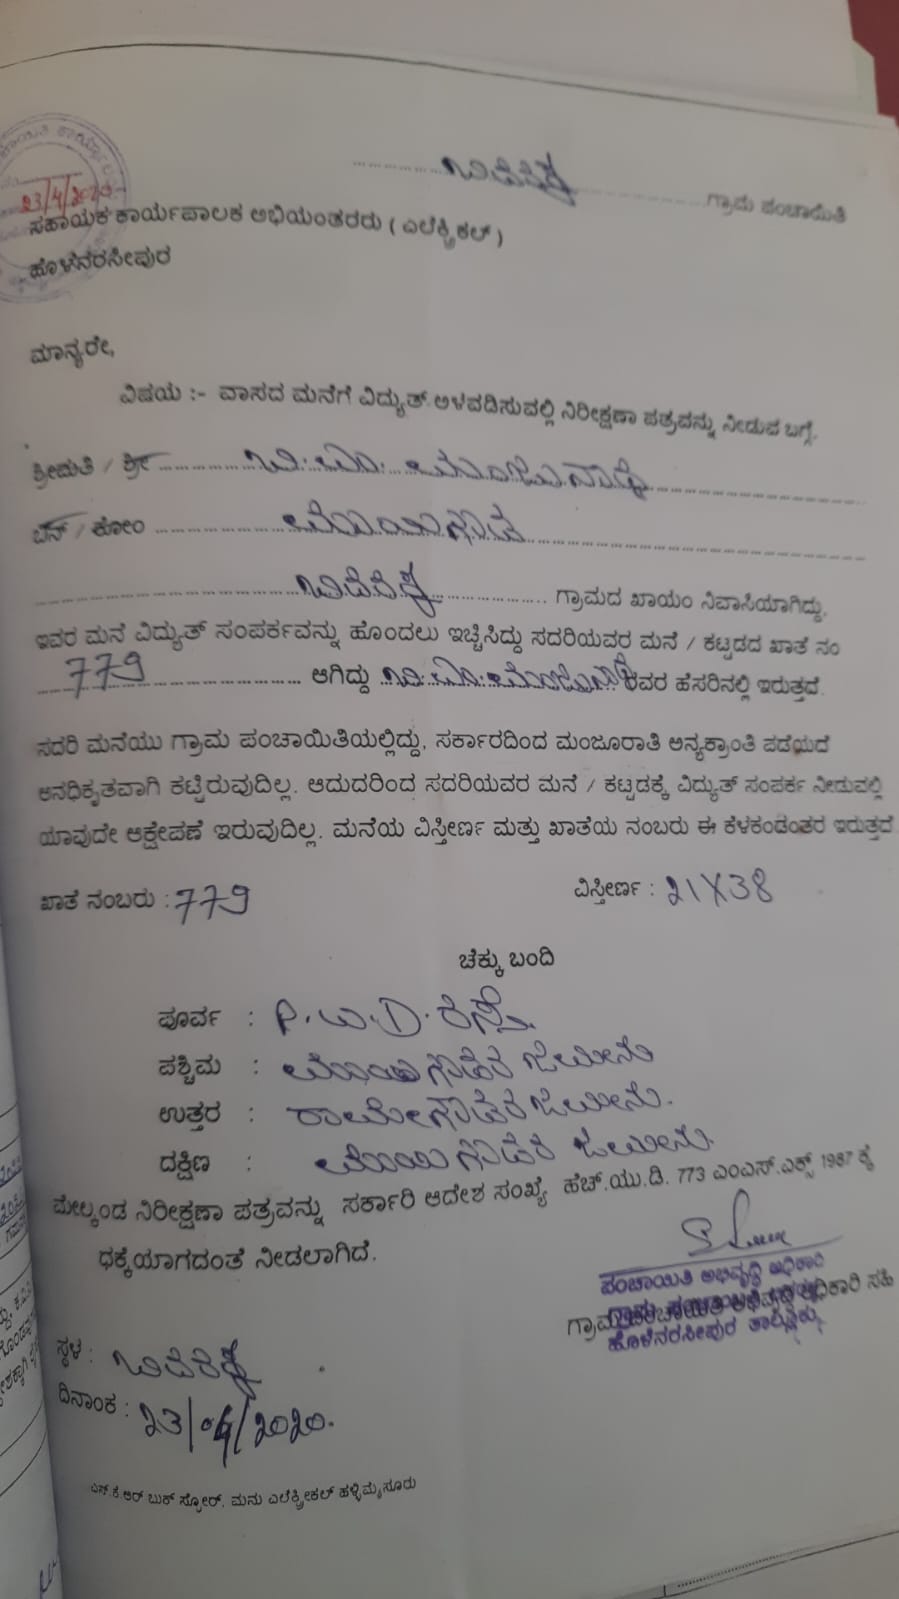 23/4/2020
ಗ್ರಾಮ ಪಂಚಾಯಿತಿ
ಸಹಾಯಕ ಕಾರ್ಯಪಾಲಕ ಅಭಿಯಂತರರು ( ಎಲೆಕ್ಟ್ರಿಕಲ್ )
ಹೊಳೆನರಸೀಪುರ
ಮಾನ್ಯರೇ,
ವಿಷಯ :- ವಾಸದ ಮನೆಗೆ ವಿದ್ಯುತ್ ಅಳವಡಿಸುವಲ್ಲಿ ನಿರೀಕ್ಷಣಾ ಪತ್ರವನ್ನು ನೀಡುವ ಬಗ್ಗೆ.
ಶ್ರೀಮತಿ / ಶ್ರೀ ಬಿ.ಎಂ. ಮಂಜುನಾಥ
ಬಿನ್ / ಕೋಂ
ಗ್ರಾಮದ ಖಾಯಂ ನಿವಾಸಿಯಾಗಿದ್ದು,
ಇವರ ಮನೆ ವಿದ್ಯುತ್ ಸಂಪರ್ಕವನ್ನು ಹೊಂದಲು ಇಚ್ಚಿಸಿದ್ದು ಸದರಿಯವರ ಮನೆ / ಕಟ್ಟಡದ ಖಾತೆ ನಂ
779 ಆಗಿದ್ದು ಬಿ.ಎಂ. ಮಂಜುನಾಥ ರವರ ಹೆಸರಿನಲ್ಲಿ ಇರುತ್ತದೆ.
ಸದರಿ ಮನೆಯು ಗ್ರಾಮ ಪಂಚಾಯಿತಿಯಲ್ಲಿದ್ದು, ಸರ್ಕಾರದಿಂದ ಮಂಜೂರಾತಿ ಅನ್ಯಕ್ರಾಂತಿ ಪಡೆಯದೆ
ಅನಧಿಕೃತವಾಗಿ ಕಟ್ಟಿರುವುದಿಲ್ಲ. ಆದುದರಿಂದ ಸದರಿಯವರ ಮನೆ / ಕಟ್ಟಡಕ್ಕೆ ವಿದ್ಯುತ್ ಸಂಪರ್ಕ ನೀಡುವಲ್ಲಿ
ಯಾವುದೇ ಆಕ್ಷೇಪಣೆ ಇರುವುದಿಲ್ಲ. ಮನೆಯ ವಿಸ್ತೀರ್ಣ ಮತ್ತು ಖಾತೆಯ ನಂಬರು ಈ ಕೆಳಕಂಡಂತರ ಇರುತ್ತದೆ
ಖಾತೆ ನಂಬರು : 779 ವಿಸ್ತೀರ್ಣ : 21X38
ಚೆಕ್ಕು ಬಂದಿ
ಪೂರ್ವ : P.W.D. ರಸ್ತೆ
ಪಶ್ಚಿಮ : ಜಮೀನು
ಉತ್ತರ : ರಾಮೇಗೌಡರ ಜಮೀನು.
ದಕ್ಷಿಣ : ಜಮೀನು.
ಮೇಲ್ಕಂಡ ನಿರೀಕ್ಷಣಾ ಪತ್ರವನ್ನು ಸರ್ಕಾರಿ ಆದೇಶ ಸಂಖ್ಯೆ ಹೆಚ್.ಯು.ಡಿ. 773 ಎಂಎಸ್.ಎಕ್ಸ್ 1987 ಕ್ಕೆ
ಧಕ್ಕೆಯಾಗದಂತೆ ನೀಡಲಾಗಿದೆ.
ಪಂಚಾಯಿತಿ ಅಭಿವೃದ್ಧಿ ಅಧಿಕಾರಿ
ಗ್ರಾಮ ಪಂಚಾಯಿತಿ ಅಭಿವೃದ್ಧಿ ಅಧಿಕಾರಿ ಸಹಿ
ಹೊಳೆನರಸೀಪುರ ತಾಲ್ಲೂಕು
ಸ್ಥಳ :
ದಿನಾಂಕ : 23/04/2020.
ಎಸ್.ಕೆ.ಆರ್ ಬುಕ್ ಸ್ಟೋರ್, ಮನು ಎಲೆಕ್ಟ್ರೀಕಲ್ ಹಳ್ಳಿಮೈಸೂರು